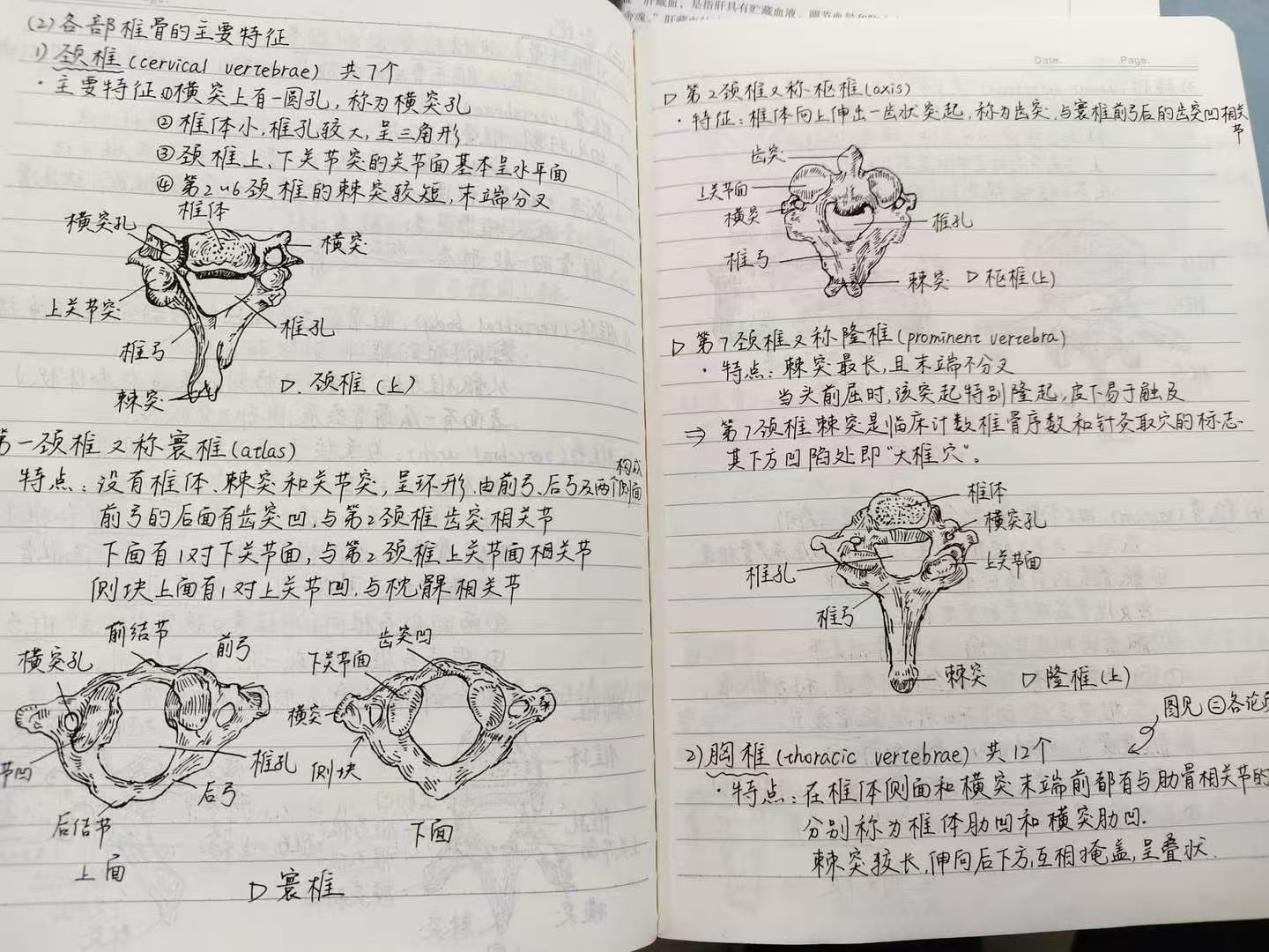 肝藏血，是指肝具有贮藏血液、调节血量和
(2)各部椎骨的主要特征
1)颈椎(cervical vertebrae) 共7个
·主要特征①横突上有一圆孔，称为横突孔
②椎体小，椎孔较大，呈三角形
③颈椎上，下关节突的关节面基本呈水平面
④第2~6颈椎的棘突较短，末端分叉
椎体
横突孔
横突
上关节突
椎孔
椎弓
棘突
▷.颈椎(上)
第一颈椎又称寰椎(atlas)
特点：没有椎体、棘突和关节突，呈环形.由前弓、后弓及两个侧面构成
前弓的后面有齿突凹，与第2颈椎齿突相关节
下面有1对下关节面，与第2颈椎上关节面相关节
侧块上面有1对上关节凹，与枕髁相关节
前结节
前弓
横突孔
节凹
椎孔
后弓
后结节
上面
齿突凹
下关节面
横突
侧块
下面
▷寰椎
Date.
Page.
▷第2颈椎又称枢椎(axis)
·特征：椎体向上伸出一齿状突起，称为齿突.与寰椎前弓后的齿突凹相关节
齿突
上关节面
横突
椎孔
椎弓
棘突
▷枢椎(上)
▷第7颈椎又称隆椎(prominent vertebra)
·特点：棘突最长，且末端不分叉
当头前屈时，该突起特别隆起，皮下易于触及
⇒第7颈椎棘突是临床计数椎骨序数和针灸取穴的标志.
其下方凹陷处即“大椎穴”。
椎体
横突孔
上关节面
椎孔
椎弓
棘突
▷隆椎(上)
图见㊂各论
2)胸椎(thoracic vertebrae) 共12个
·特点：在椎体侧面和横突末端前都有与肋骨相关节的
分别称为椎体肋凹和横突肋凹.
棘突较长，伸向后下方，互相掩盖，呈叠状.